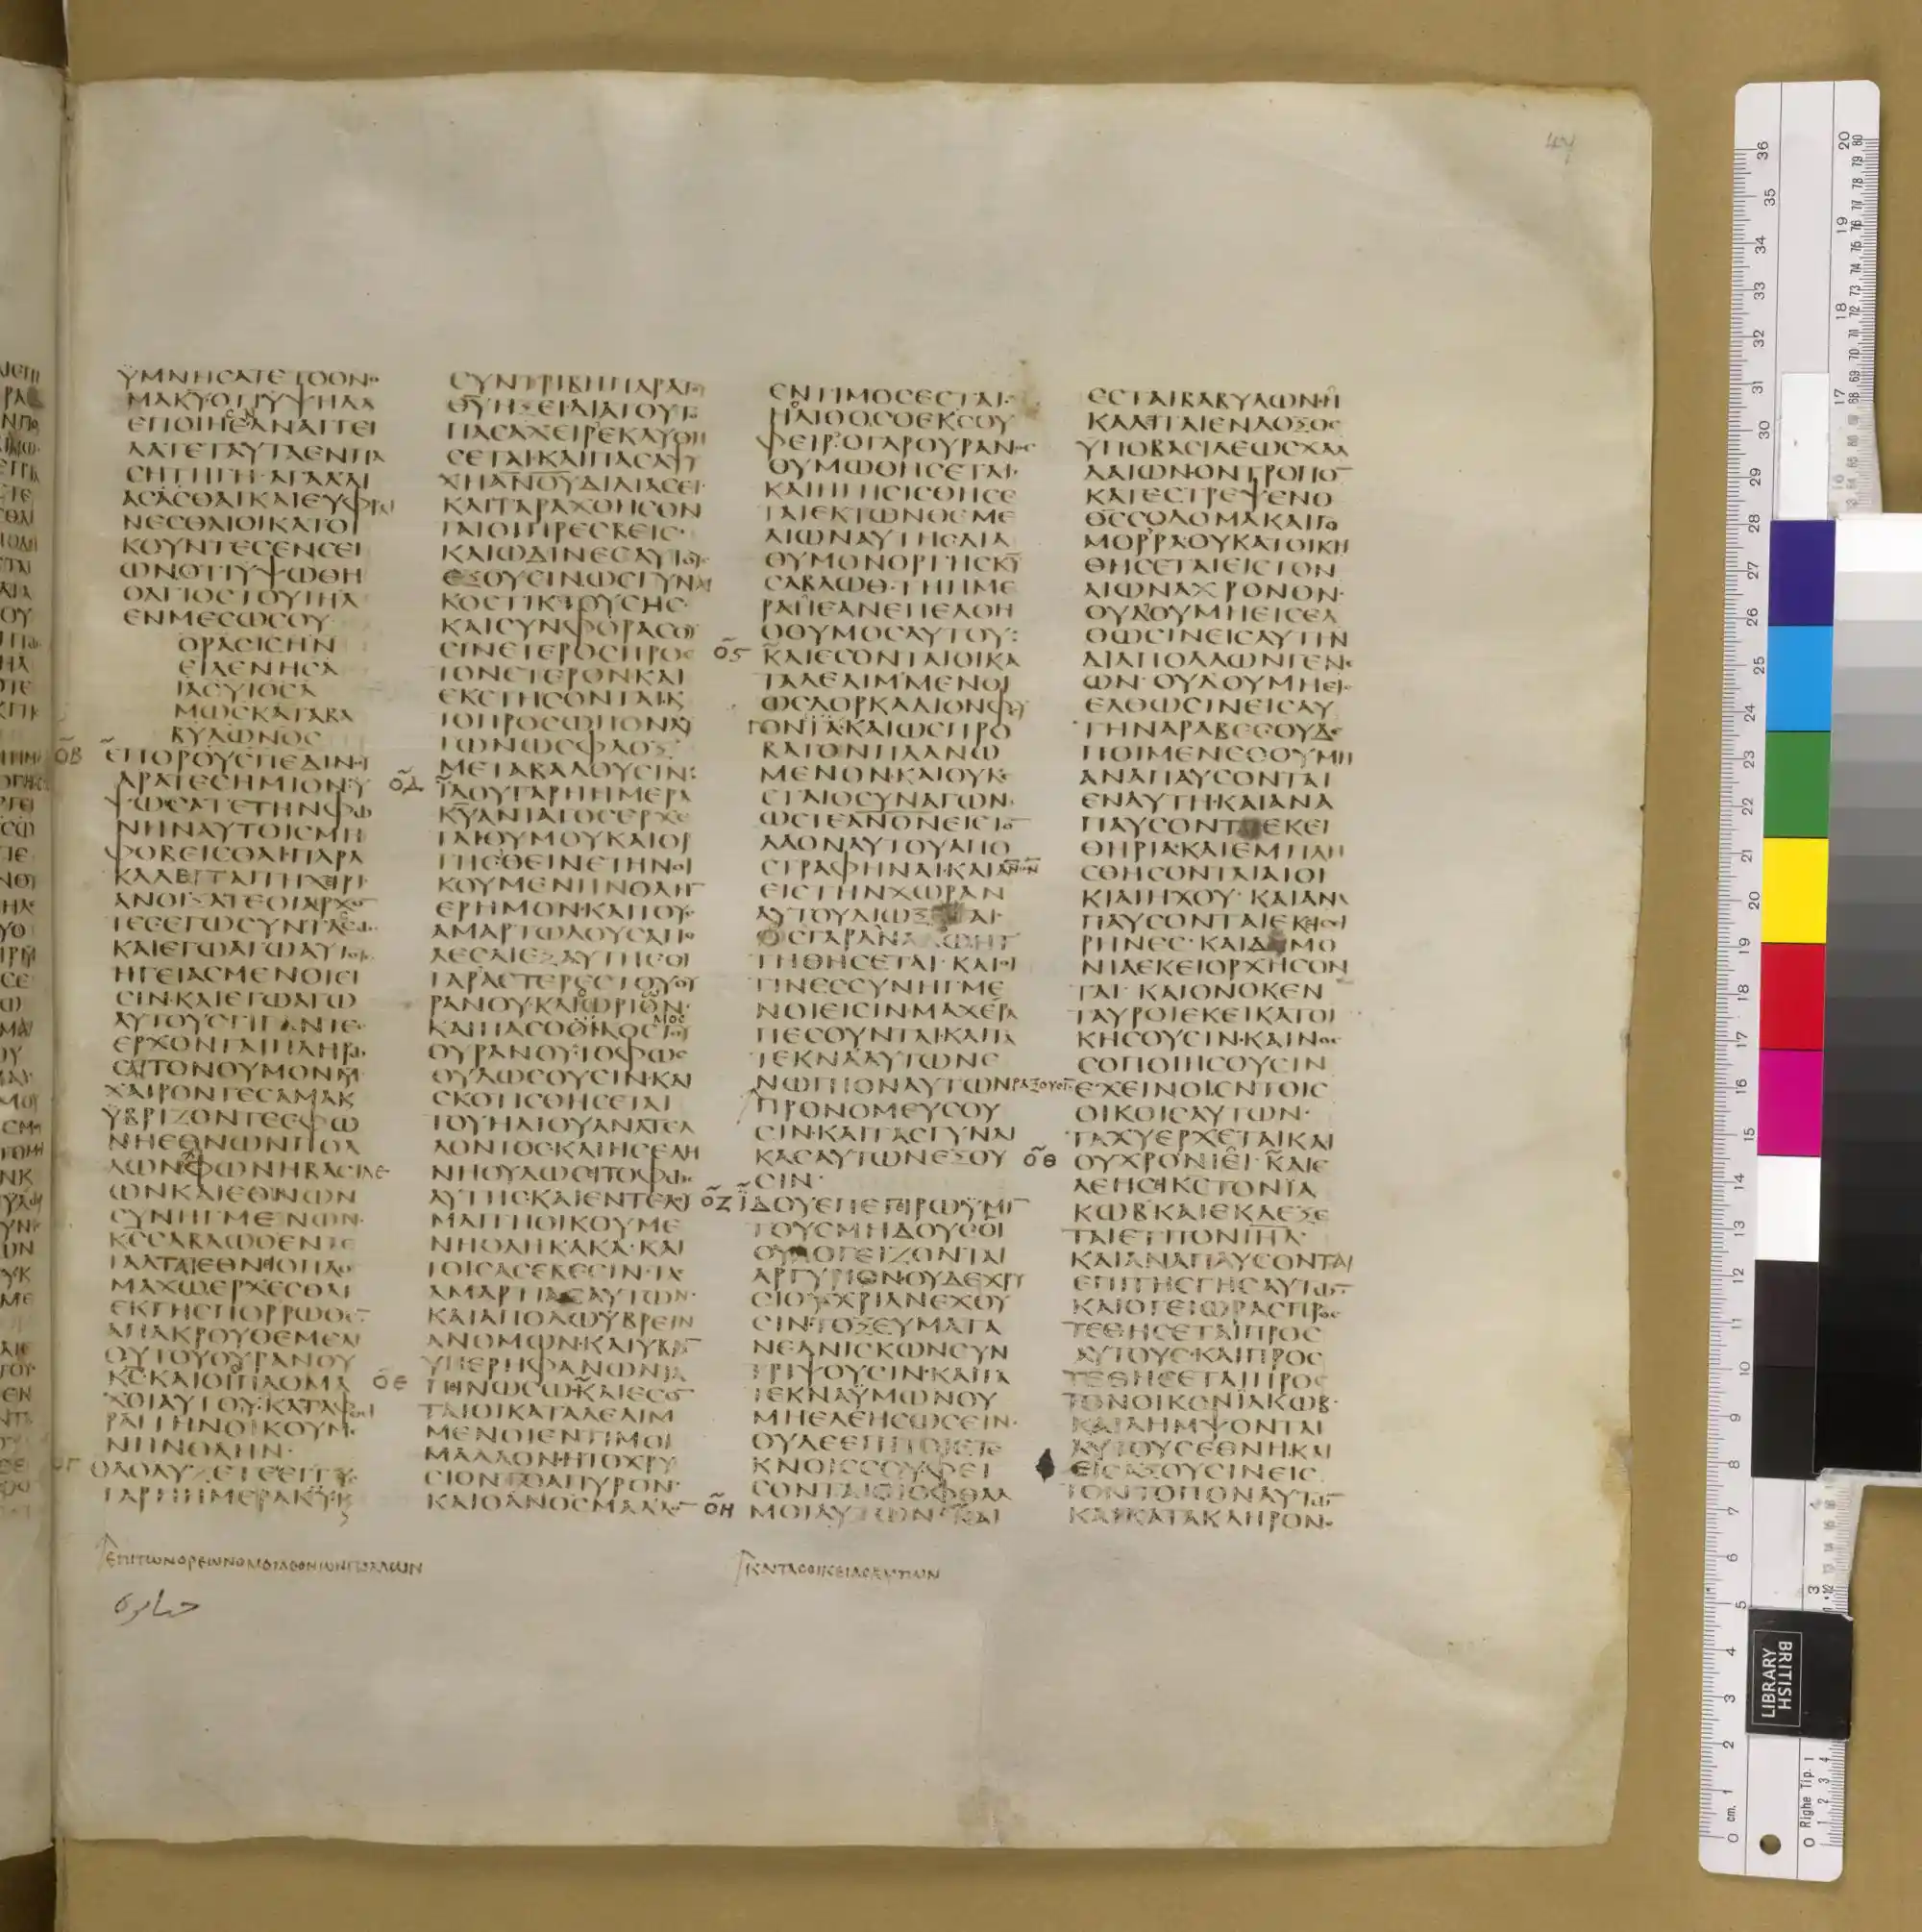 ΫΜΝΗCΑΤΕΤΟΟΝΟ
ΜΑΚΥΟΤΙΫΨΗΛΑ
ΕΠΟΙΗCΕΝΑΝΑΓΓΕΙ
ΛΑΤΕΤΑΥΤΑΕΝΠΑ
CΗΤΗΓΗ·ΑΓΑΛΛΙ
ΑCΑCΘΑΙΚΑΙΕΥΦΡΑΙ
ΝΕCΘΑΙΟΙΚΑΤΟΙ
ΚΟΥΝΤΕCΕΝCΕΙ
ΩΝ·ΟΤΙΥΨΩΘΗ
ΟΑΓΙΟCΤΟΥΙΗΛ
ΕΝΜΕCΩCΟΥ
ΟΡΑCΙCΗΝ
ΕΙΔΕΝΗCΑ
ΙΑCΥΙΟCΑ
ΜΩCΚΑΤΑΒΑ
ΒΥΛΩΝΟC
ΟΒ ΕΠΟΡΟΥCΠΕΔΙΝΟΥ
ΑΡΑΤΕCΗΜΙΟΝ·Υ
ΨΩCΑΤΕΤΗΝΦΩ
ΝΗΝΑΥΤΟΙCΜΗ
ΦΟΒΕΙCΘΑΙ·ΠΑΡΑ
ΚΑΛΕΙΤΑΙΤΗΧΕΙΡΙ·
ΑΝΟΙΞΑΤΕΟΙΑΡΧΟ
ΤΕCΕΓΩCΥΝΤΑCCΩ
ΚΑΙΕΓΩΑΓΩΑΥΤΟΥC
ΗΓΕΙΑCΜΕΝΟΙΕΙ
CΙΝ·ΚΑΙΕΓΩΑΓΩ
ΑΥΤΟΥCΓΙΓΑΝΤΕC
ΕΡΧΟΝΤΑΙΠΛΗΡΩ
CΑΙΤΟΝΘΥΜΟΝΜΟΥ
ΧΑΙΡΟΝΤΕCΑΜΑΚ
ΫΒΡΙΖΟΝΤΕCΦΩ
ΝΗΕΘΝΩΝΠΟΛ
ΛΩΝΦΩΝΗΒΑCΙΛΕ
ΩΝΚΑΙΕΘΝΩΝ
CΥΝΗΓΜΕΝΩΝ·
ΚCCΑΒΑΩΘΕΝΤΕ
ΤΑΛΤΑΙΕΘΝΙΟΠΛΟ
ΜΑΧΩΕΡΧΕCΘΑΙ
ΕΚΓΗCΠΟΡΡΩΘΕ
ΑΠΑΚΡΟΥΘΕΜΕΛΙ
ΟΥΤΟΥΟΥΡΑΝΟΥ
ΚC·ΚΑΙΟΙΟΠΛΟΜΑ
ΧΟΙΑΥΤΟΥ·ΚΑΤΑΦΘΙ
ΡΑΙΤΗΝΟΙΚΟΥΜΕ
ΝΗΝΟΛΗΝ·
ΟΓ ΟΛΟΛΥΖΕΤΕΕΓΓΥC
ΓΑΡΗΗΜΕΡΑΚΥ·Κ
CΥΝΤΡΙΒΗΠΑΡΑΘΥ
ΘΥΗΞΕΙ·ΔΙΑΤΟΥΤΟ
ΠΑCΑΧΕΙΡΕΚΛΥΘΗ
CΕΤΑΙ·ΚΑΙΠΑCΑΨΥ
ΧΗΑΝΟΥΔΙΛΙΑCΕΙ·
ΚΑΙΤΑΡΑΧΘΗCΟΝ
ΤΑΙΟΙΠΡΕCΒΕΙC·
ΚΑΙΩΔΙΝΕCΑΥΤΟΥC
ΕΞΟΥCΙΝΩCΓΥΝΑΙ
ΚΟCΤΙΚΤΟΥCΗC·
ΚΑΙCΥΝΦΟΡΑCΟΥ
CΙΝΕΤΕΡΟCΠΡΟC
ΤΟΝΕΤΕΡΟΝΚΑΙ
ΕΚCΤΗCΟΝΤΑΙ·Κ
ΤΟΠΡΟCΩΠΟΝΑΥ
ΤΩΝΩCΦΛΟΞ
ΜΕΤΑΒΑΛΟΥCΙΝ:
ΟΔ ΙΔΟΥΓΑΡΗΗΜΕΡΑ
ΚΥΑΝΙΑΤΟCΕΡΧΕ
ΤΑΙΘΥΜΟΥΚΑΙΟΡ
ΓΗCΘΕΙΝΕΤΗΝΟΙ
ΚΟΥΜΕΝΗΝΟΛΗ
ΕΡΗΜΟΝ·ΚΑΙΤΟΥC
ΑΜΑΡΤΩΛΟΥCΑΠΟ
ΛΕCΑΙΕΞΑΥΤΗCΟΙ
ΓΑΡΑCΤΕΡΕCΤΟΥΟΥ
ΡΑΝΟΥ·ΚΑΙΩΡΙΩΝ·
ΚΑΙΠΑCΟΟΙΚΟCΤΟΥ
ΜΟC
ΟΥΡΑΝΟΥ:ΤΟΦΩC
ΟΥΔΩCΟΥCΙΝ·ΚΑΙ
CΚΟΤΙCΘΗCΕΤΑΙ
ΤΟΥΗΛΙΟΥΑΝΑΤΕΛ
ΛΟΝΤΟC·ΚΑΙΗCΕΛΗ
ΝΗΟΥΔΩCΙΤΟΦΩC
ΑΥΤΗC·ΚΑΙΕΝΤΕΛΟΥ
ΜΑΙΤΗΟΙΚΟΥΜΕ
ΝΗΟΛΗΚΑΚΑ·ΚΑΙ
ΤΟΙCΑCΕΒΕCΙΝ·ΤΑC
ΑΜΑΡΤΙΑCΑΥΤΩΝ·
ΚΑΙΑΠΟΛΩΫΒΡΕΙΝ
ΑΝΟΜΩΝ·ΚΑΙΥΒΡΙ
ΥΠΕΡΗΦΑΝΩΝΤΑ
ΟΕ ΠΙΝΩCΩ·ΚΑΙΕCΟ
ΤΑΙΟΙΚΑΤΑΛΕΛΙΜ
ΜΕΝΟΙΕΝΤΙΜΟΙ
ΜΑΛΛΟΝΗΤΟΧΡΥ
CΙΟΝΤΟΑΠΥΡΟΝ·
ΚΑΙΟΑΝΟCΜΑΛΛΟ
ΕΝΤΙΜΟCΕCΤΑΙ·
ΗΛΙΘΟCΟΕΚCΟΥ
ΦΕΙΡ·ΟΓΑΡΟΥΡΑΝΟC
ΘΥΜΩΘΗCΕΤΑΙ·
ΚΑΙΗΓΗCΙCΘΗCΕ
ΤΑΙΕΚΤΩΝΘΕΜΕ
ΛΙΩΝΑΥΤΗCΔΙΑ
ΘΥΜΟΝΟΡΓΗCΚΥ
CΑΒΑΩΘ·ΤΗΗΜΕ
ΡΑΗΕΑΝΕΠΕΛΘΗ
ΟΘΥΜΟCΑΥΤΟΥ:
ΟϚ ΚΑΙΕCΟΝΤΑΙΟΙΚΑ
ΤΑΛΕΛΙΜΜΕΝΟΙ
ΩCΔΟΡΚΑΔΙΟΝΦΥ
ΓΟΝΤΑ·ΚΑΙΩCΠΡΟ
ΒΑΤΟΝΠΛΑΝΩ
ΜΕΝΟΝ·ΚΑΙΟΥΚΕ
CΤΑΙΟCΥΝΑΓΩΝ·
ΩCΤΕΑΝΟΝΕΙCΤΟ
ΛΑΟΝΑΥΤΟΥΑΠΟ
CΤΡΑΦΗΝΑΙ·ΚΑΙΑΝΟΝ
ΕΙCΤΗΝΧΩΡΑΝ
ΑΥΤΟΥΔΙΩΞΕΤΑΙ·
ΟCΓΑΡΑΝΑΛΩΗΤ
ΤΗΘΗCΕΤΑΙ·ΚΑΙΟΙ
ΤΙΝΕCCΥΝΗΓΜΕ
ΝΟΙΕΙCΙΝ·ΜΑΧΕΡΑ
ΠΕCΟΥΝΤΑΙ·ΚΑΙΤΑ
ΤΕΚΝΑΑΥΤΩΝΕ
ΝΩΠΙΟΝΑΥΤΩΝΡΑΞΟΥCΙ
ΠΡΟΝΟΜΕΥCΟΥ
CΙΝ·ΚΑΙΤΑCΓΥΝΑΙ
ΚΑCΑΥΤΩΝΕΞΟΥ
CΙΝ·
ΟΖ ΙΔΟΥΕΠΕΓΙΡΩΫΜΙ
ΤΟΥCΜΗΔΟΥCΟΙ
ΟΥΛΟΓΕΙΖΟΝΤΑΙ
ΑΡΓΥΡΙΟΝΟΥΔΕΧΡΥ
CΙΟΥΧΡΙΑΝΕΧΟΥ
CΙΝ·ΤΟΞΕΥΜΑΤΑ
ΝΕΑΝΙCΚΩΝCΥΝ
ΤΡΙΨΟΥCΙΝ·ΚΑΙΤΑ
ΤΕΚΝΑΫΜΩΝΟΥ
ΜΗΕΛΕΗCΩCΕΙΝ·
ΟΥΔΕΕΠΙΤΟΙCΤΕ
ΚΝΟΙCCΟΥΦΕΙ
CΟΝΤΑΙΟΙΟΦΘΑΛ
ΟΗ ΜΟΙΑΥΤΩΝ·ΚΑΙ
ΕCΤΑΙΒΑΒΥΛΩΝ·Η
ΚΑΛΙΤΑΙΕΝΔΟΞΟC
ΥΠΟΒΑCΙΛΕΩCΧΑΛ
ΔΑΙΩΝ·ΟΝΤΡΟΠΟ
ΚΑΤΕCΤΡΕΨΕΝΟ
ΘCCΟΔΟΜΑΚΑΙΓΟ
ΜΟΡΡΑΟΥΚΑΤΟΙΚΗ
ΘΗCΕΤΑΙΕΙCΤΟΝ
ΑΙΩΝΑΧΡΟΝΟΝ·
ΟΥΔΟΥΜΗΕΙCΕΛ
ΘΩCΙΝΕΙCΑΥΤΗΝ
ΔΙΑΠΟΛΛΩΝΓΕΝΕ
ΩΝ·ΟΥΔΟΥΜΗΕΙC
ΕΛΘΩCΙΝΕΙCΑΥ
ΤΗΝΑΡΑΒΕCΟΥΔΕ
ΠΟΙΜΕΝΕCΟΥΜΗ
ΑΝΑΠΑΥCΟΝΤΑΙ
ΕΝΑΥΤΗ·ΚΑΙΑΝΑ
ΠΑΥCΟΝΤΑΙΕΚΕΙ
ΘΗΡΙΑ·ΚΑΙΕΜΠΛΗ
CΘΗCΟΝΤΑΙΑΙΟΙ
ΚΙΑΙΗΧΟΥ·ΚΑΙΑΝΑ
ΠΑΥCΟΝΤΑΙΕΚΕΙCΙ
ΡΗΝΕC·ΚΑΙΔΑΙΜΟ
ΝΙΑΕΚΕΙΟΡΧΗCΟΝ
ΤΑΙ·ΚΑΙΟΝΟΚΕΝ
ΤΑΥΡΟΙΕΚΕΙΚΑΤΟΙ
ΚΗCΟΥCΙΝ·ΚΑΙΝΟC
CΟΠΟΙΗCΟΥCΙΝ
ΕΧΕΙΝΟΙΕΝΤΟΙC
ΟΙΚΟΙCΑΥΤΩΝ·
ΤΑΧΥΕΡΧΕΤΑΙΚΑΙ
ΟΘ ΟΥΧΡΟΝΙΕΙ·ΚΑΙΕ
ΛΕΗCΙΚCΤΟΝΙΑ
ΚΩΒ·ΚΑΙΕΚΛΕΞΕ
ΤΑΙΕΤΙΤΟΝΙΗΛ·
ΚΑΙΑΝΑΠΑΥCΟΝΤΑΙ
ΕΠΙΤΗCΓΗCΑΥΤΩ
ΚΑΙΟΓΕΙΩΡΑCΠΡΟC
ΤΕΘΗCΕΤΑΙΠΡΟC
ΑΥΤΟΥC·ΚΑΙΠΡΟC
ΤΕΘΗCΕΤΑΙΠΡΟC
ΤΟΝΟΙΚΟΝΙΑΚΩΒ·
ΚΑΙΛΗΜΨΟΝΤΑΙ
ΑΥΤΟΥCΕΘΝΗ·ΚΑΙ
ΕΙCΑΞΟΥCΙΝΕΙC
ΤΟΝΤΟΠΟΝΑΥΤΩ
ΚΑΙΚΑΤΑΚΛΗΡΟΝΟ
ΕΠΙΤΩΝΟΡΕΩΝΟΜΟΙΑΕΘΝΩΝΠΟΛΛΩΝ
ΚΑΙΤΑCΟΙΚΕΙΑCΑΥΤΩΝ
36 35 34 33 32 31 30 29 28 27 26 25 24 23 22 21 20 19 18 17 16 15 14 13 12 11 10 9 8 7 6 5 4 3 2 1 0 cm.
BRITISH
LIBRARY
0 Righe Tip. 1